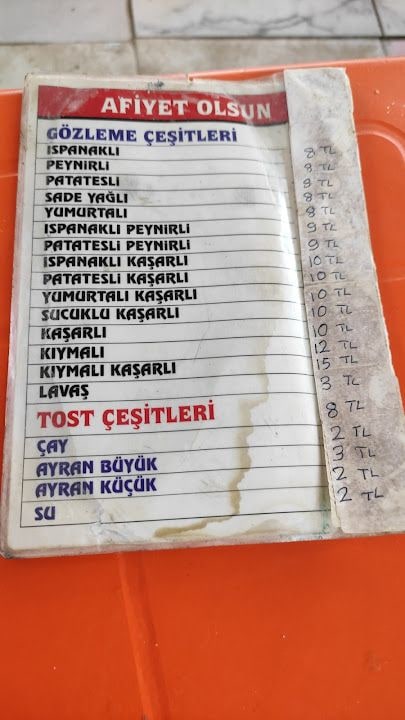 AFİYET OLSUN
GÖZLEME ÇEŞİTLERİ
ISPANAKLI 8 TL
PEYNİRLİ 8 TL
PATATESLİ 8 TL
SADE YAĞLI 8 TL
YUMURTALI 8 TL
ISPANAKLI PEYNİRLİ 9 TL
PATATESLİ PEYNİRLİ 9 TL
ISPANAKLI KAŞARLI 10 TL
PATATESLİ KAŞARLI 10 TL
YUMURTALI KAŞARLI 10 TL
SUCUKLU KAŞARLI 10 TL
KAŞARLI 10 TL
KIYMALI 12 TL
KIYMALI KAŞARLI 15 TL
LAVAŞ 3 TL
TOST ÇEŞİTLERİ 8 TL
ÇAY 2 TL
AYRAN BÜYÜK 3 TL
AYRAN KÜÇÜK 2 TL
SU 2 TL